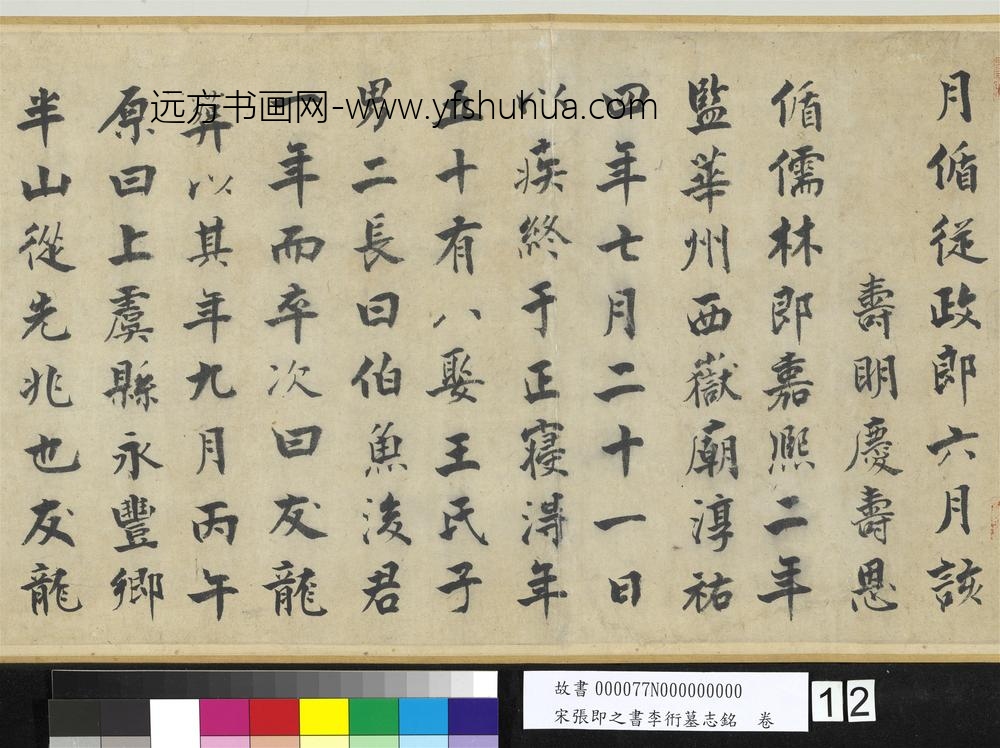 月循從政郎六月該
壽明慶壽恩
循儒林郎嘉熈二年
監華州西嶽廟淳祐
四年七月二十一日
以疾終于正寝淂年
五十有八娶王氏子
男二長曰伯魚後君
一年而卒次曰友龍
葬以其年九月丙午
原曰上虞縣永豐鄉
半山從先兆也友龍
远方书画网-www.yfshuhua.com
故書 000077N000000000
宋張即之書李衎墓志銘 卷
12